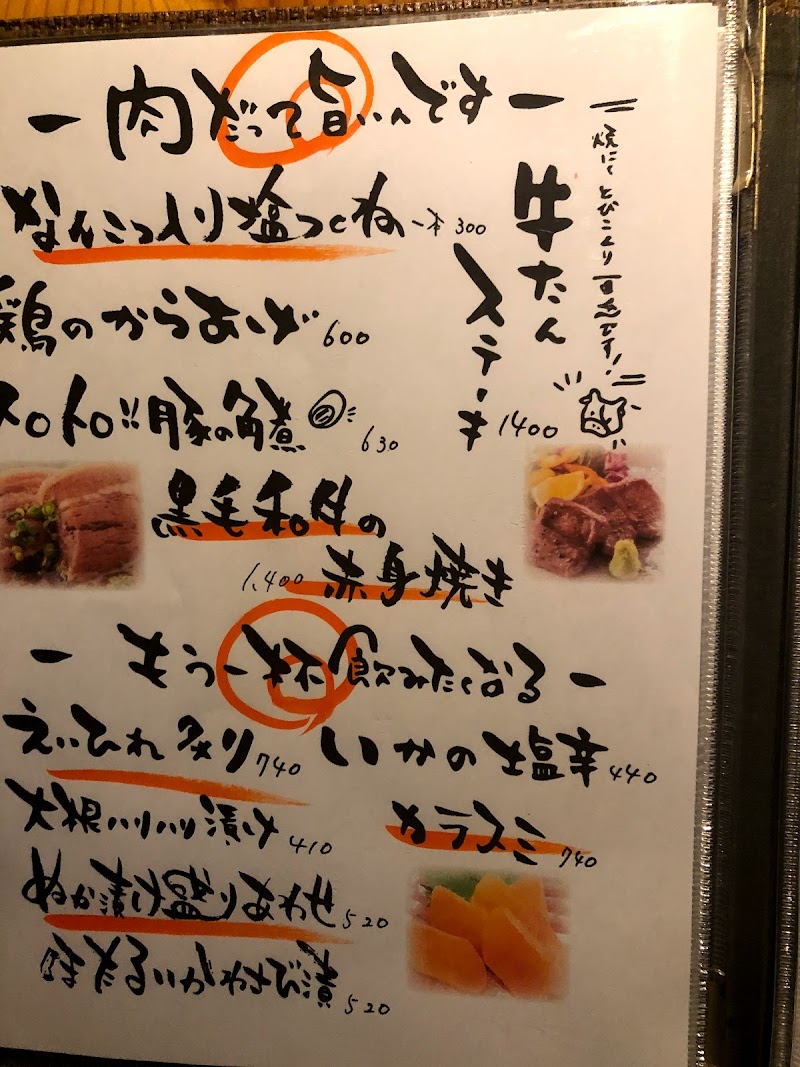 ー 肉だって旨いんです ー
なんこつ入り塩つくね 一本 300
鶏のからあげ 600
トロトロ!! 豚の角煮 630
黒毛和牛の
赤身焼き 1,400
牛たん
ステーキ 1400
焼にくとびっくり
です!
ー もう一杯飲みたくなる ー
えいひれ炙り 740
いかの塩辛 440
大根ハリハリ漬け 410
カラスミ 740
ぬか漬け盛りあわせ 520
ほたるいかわさび漬 520